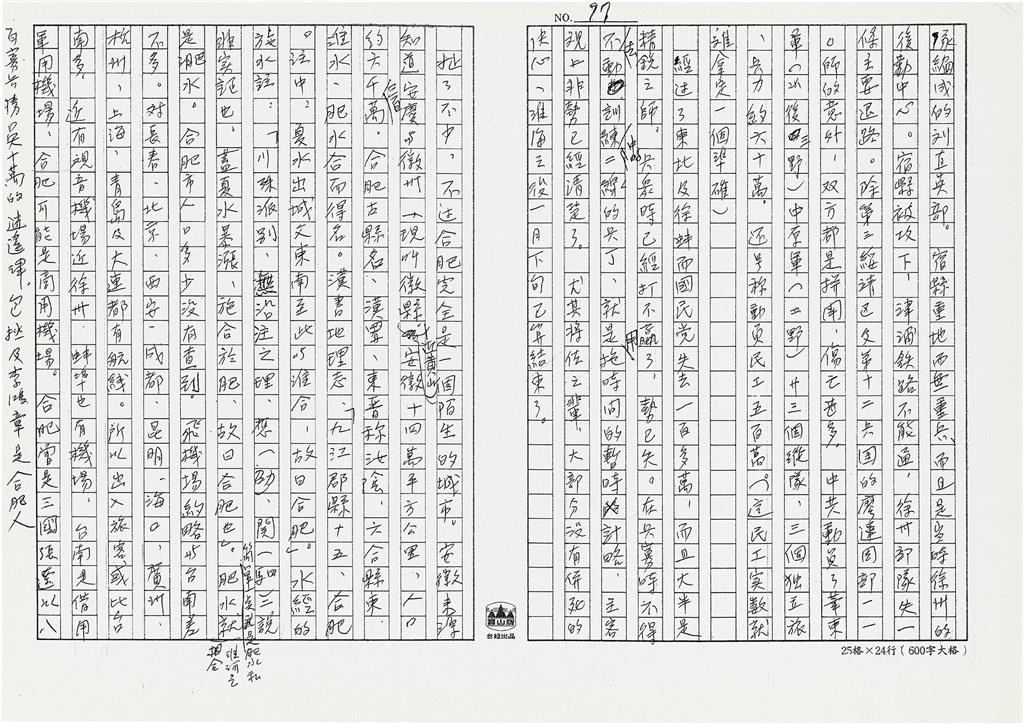 NO. 97
隊編成的刘直吳部。宿縣重地西無重兵、而且是当時徐州的
後勤中心。宿縣被攻下、津浦鉄路不能通、徐州部隊失一
條主要退路。除第三綏靖区及第十二兵団的廖運周部一一
。師的意外、双方都是拼囲、傷亡甚多。中共動員了華東
軍(以後三野)中原軍(二野)廿三個縱隊、三個独立旅
、兵力約六十萬。还号称動員民工五百萬。(這民工实数就
誰拿定一個準確)
經过了東北及徐蚌而國民党失去一百多萬、而且大半是
精銳之師。共衆時已經打不贏了、勢已失。在兵寡時不得
不動訓練二線的兵丁、就是拖用時间的暫時計略、主客
观上非勢已經清楚了。尤其將佐之輩、大部分沒有併死的
决心、淮海之後一月下旬已算結束了。
25格×24行(600字大格)
台紐出品
扯了不少、不过合肥完全是一個陌生的城市。安徽来源
知道安慶与徽州(現叫徽縣近黄山)計安徽十四萬平方公里、人口
約六千萬。合肥古縣名、漢置、東晋称汝陰、六合縣東
淮水、肥水合而得名。漢書地理志、「九江郡縣十五、合肥
。注中、夏水出城父東南至此与淮合、故曰合肥」。水經的
施水註:「川殊派別、無沿注之理、應一劭、關一駰三說
非实証也、蓋夏水暴漲、施合於肥、故曰合肥也」。肥水就
是淝水。合肥市人口多少没有查到。飛機場約略与台南差
不多。对長春、北京、西安、成都、昆明、海口、廣州、
杭州、上海、青島及大連都有航綫。所以出入旅客或比台
南多、近有观音機場近徐州、蚌埠也有機場、台南是借用
軍用機場、合肥可能是商用機場。合肥曾是三國張遼以八
百寡兵勝吳十萬的逍遙津。包拯及李鴻章是合肥人